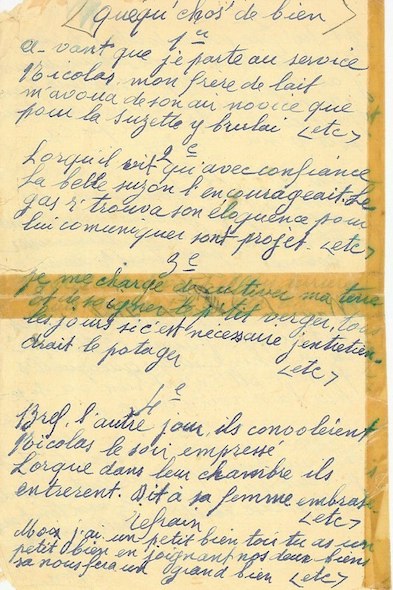 (quéqu'chos' de bien)
1e
a-vant que je parte au service
Nicolas, mon frère de lait
m'avoua de son air novice que
pour la Suzette y brulai <etc>
2e
Lorqu'il vit qu'avec confiance
La belle suzon l'encourageait. Le
gas r'trouva son éloquence pour
lui comuniquer sont projet. <etc>
3e
je me charge de cultiver ma terre
et de soigner le p'tit verger, tous
les jours si c'est nécessaire j'entretien-
drait le potager
<etc>
4e
Bref, l'autre jour, ils convoleient
Nicolas le soir empressé
Lorque dans leur chambre ils
entrerent. Dit à sa femme embras
<etc>
refrain
Moi j'ai un petit bien toi tu as un
petit bien en joignant nos deux biens
sa nous fera un grand bien <etc>